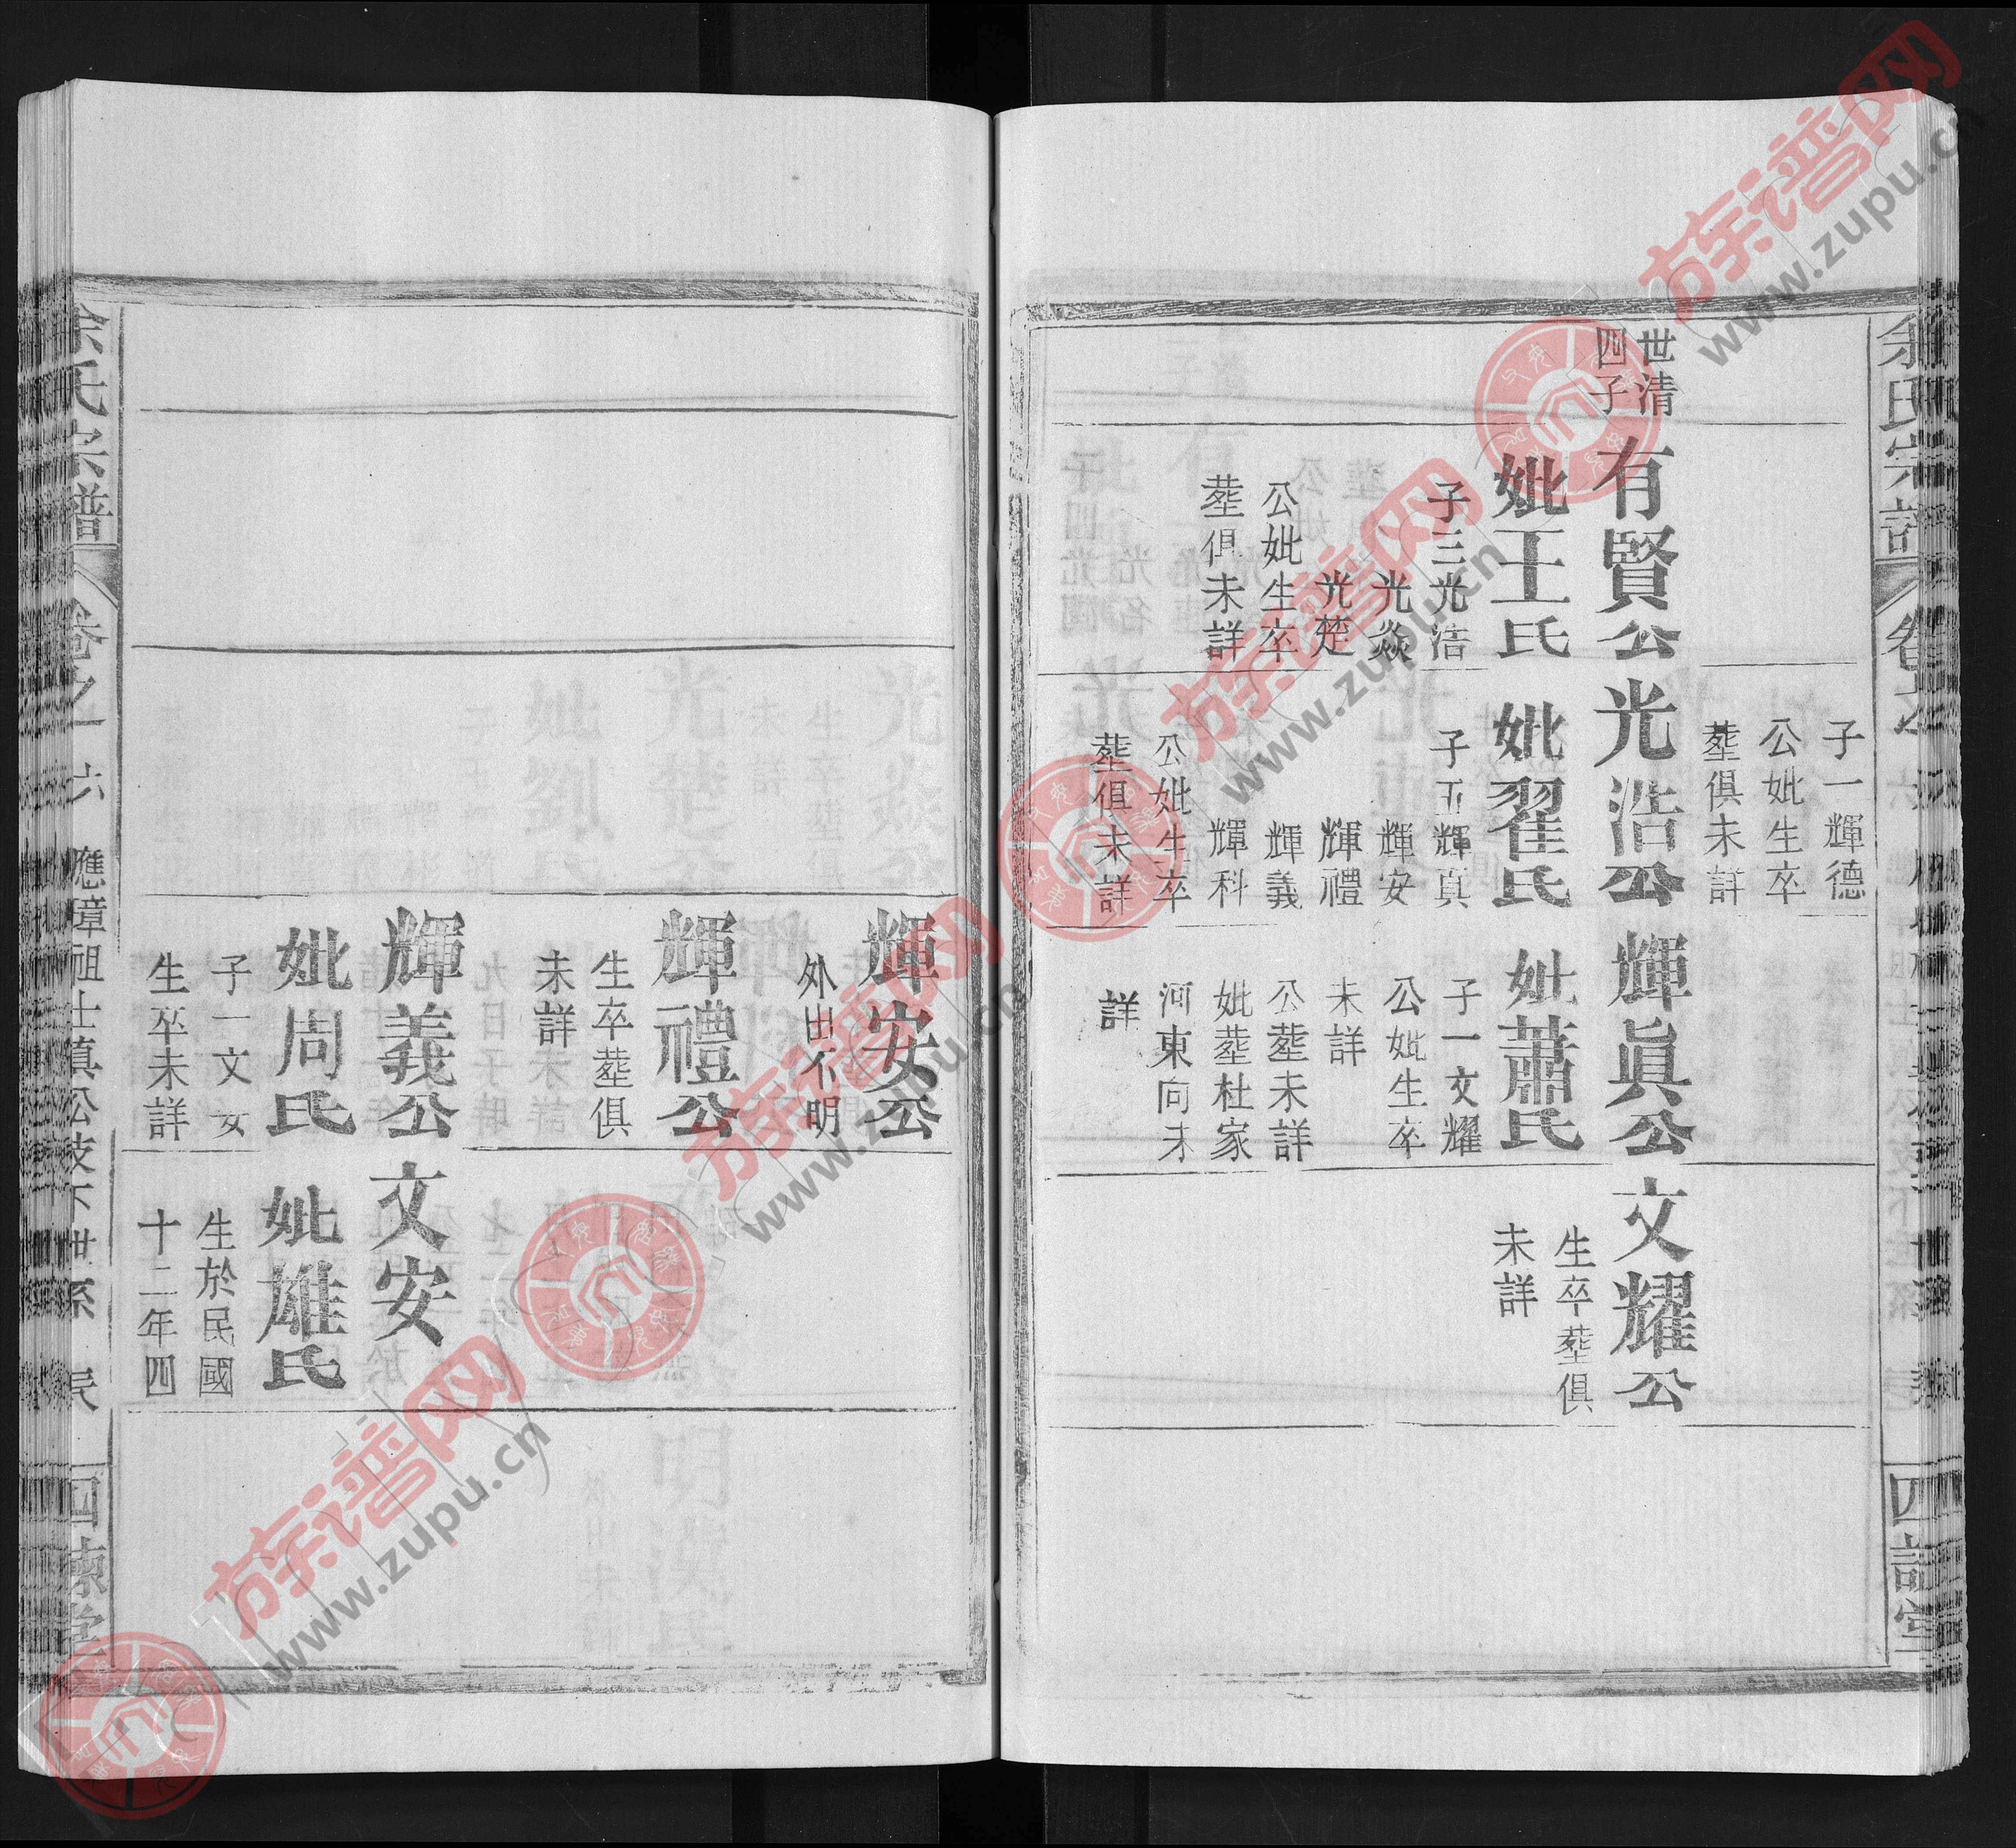 余氏宗譜
子一輝德
公妣生卒
塟俱未詳
世清
四子
有賢公
妣王氏
子三光浩
光焱
光楚
公妣生卒
塟俱未詳
光浩公
妣翟氏
子五輝真
輝安
輝禮
輝義
輝科
公妣生卒
塟俱未詳
輝眞公
妣蕭氏
子一文耀
公妣生卒
未詳
公塟未詳
妣塟杜家
河東向未
詳
文耀公
生卒塟俱
未詳
輝安公
外出不明
輝禮公
生卒塟俱
未詳
輝義公
妣周氏
子一文安
生卒未詳
文安
妣雄氏
生於民國
十二年四
余氏宗譜
卷之一
六
應璋祖士真公支下世系
四諫堂
族谱网
www.zupu.cn
族谱网
www.zupu.cn
族谱网
www.zupu.cn
族谱网
www.zupu.cn